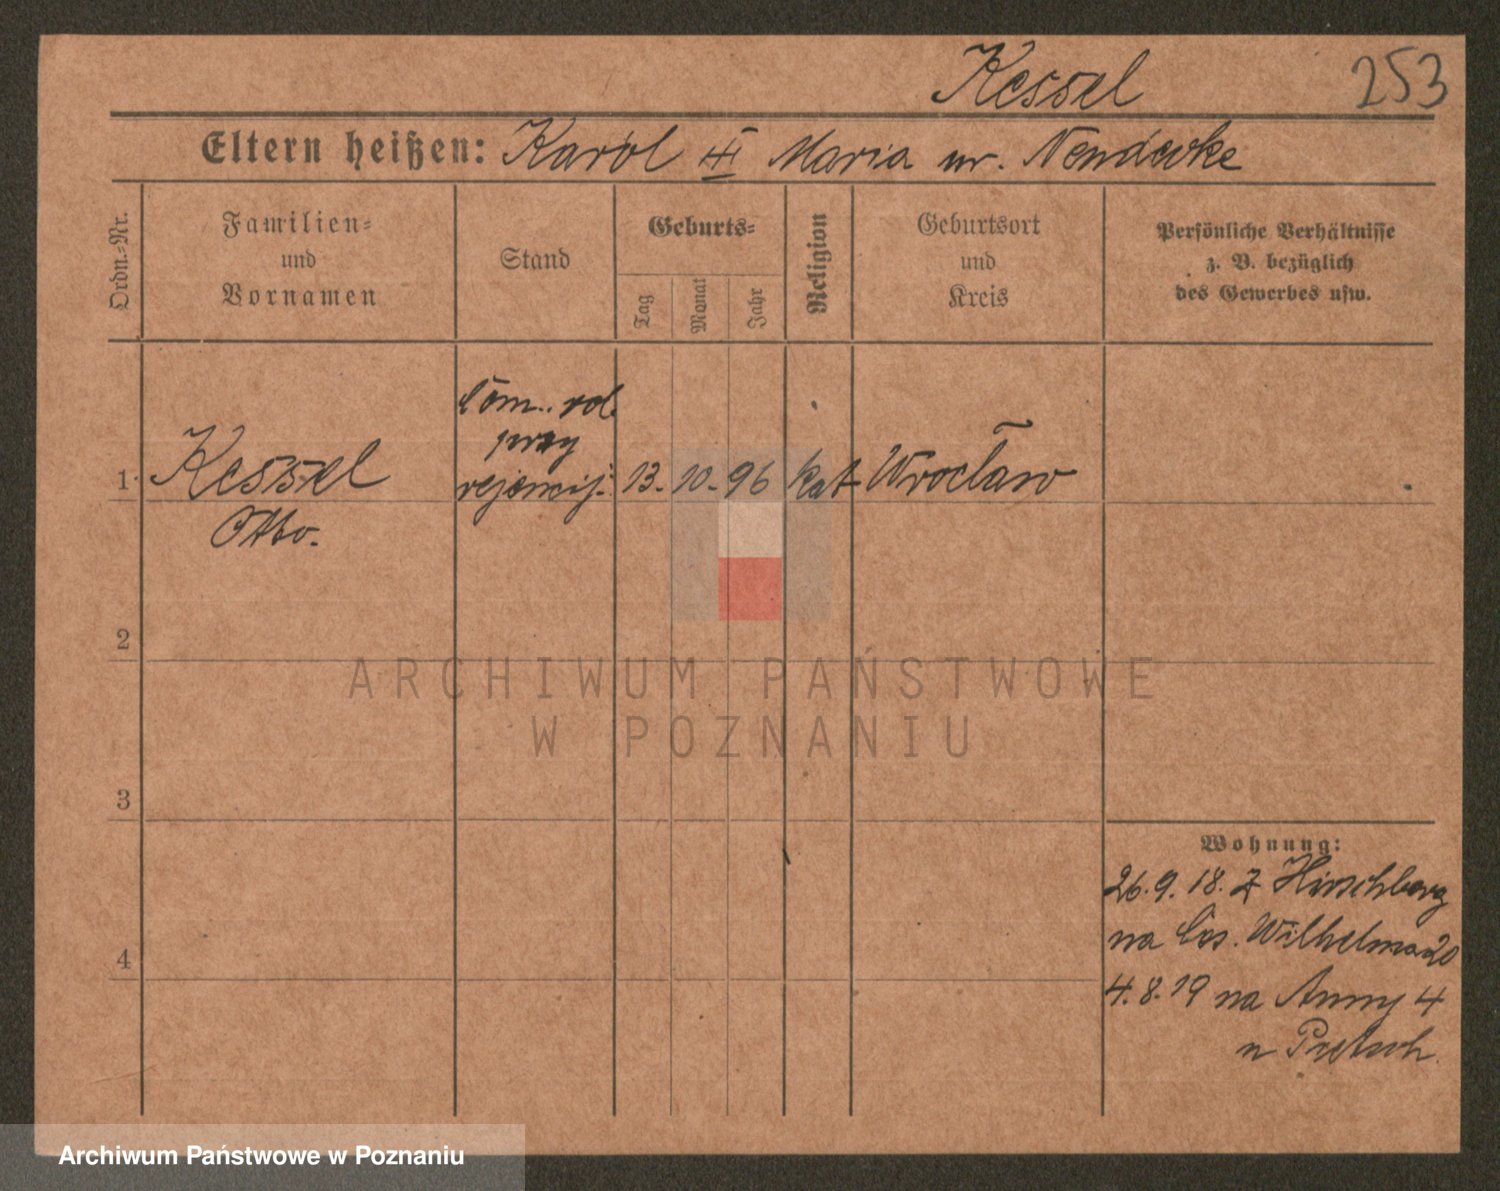 Kessel 253
Eltern heißen: Karol III Maria ur. Nendecke
Ordn.-Nr.
Familien-
und
Vornamen
Stand
Geburts-
Tag
Monat
Jahr
Religion
Geburtsort
und
Kreis
Persönliche Verhältnisse
z. B. bezüglich
des Gewerbes usw.
przy
1 Kessel rejencij. 13. 10. 96 kat Wrocław
Otto.
2
3
4
ARCHIWUM PAŃSTWOWE
W POZNANIU
Wohnung:
26. 9. 18. Z Hirschberg
na Ces. Wilhelma 20
4. 8. 19 na Anny 4
u Pretsch.
Archiwum Państwowe w Poznaniu